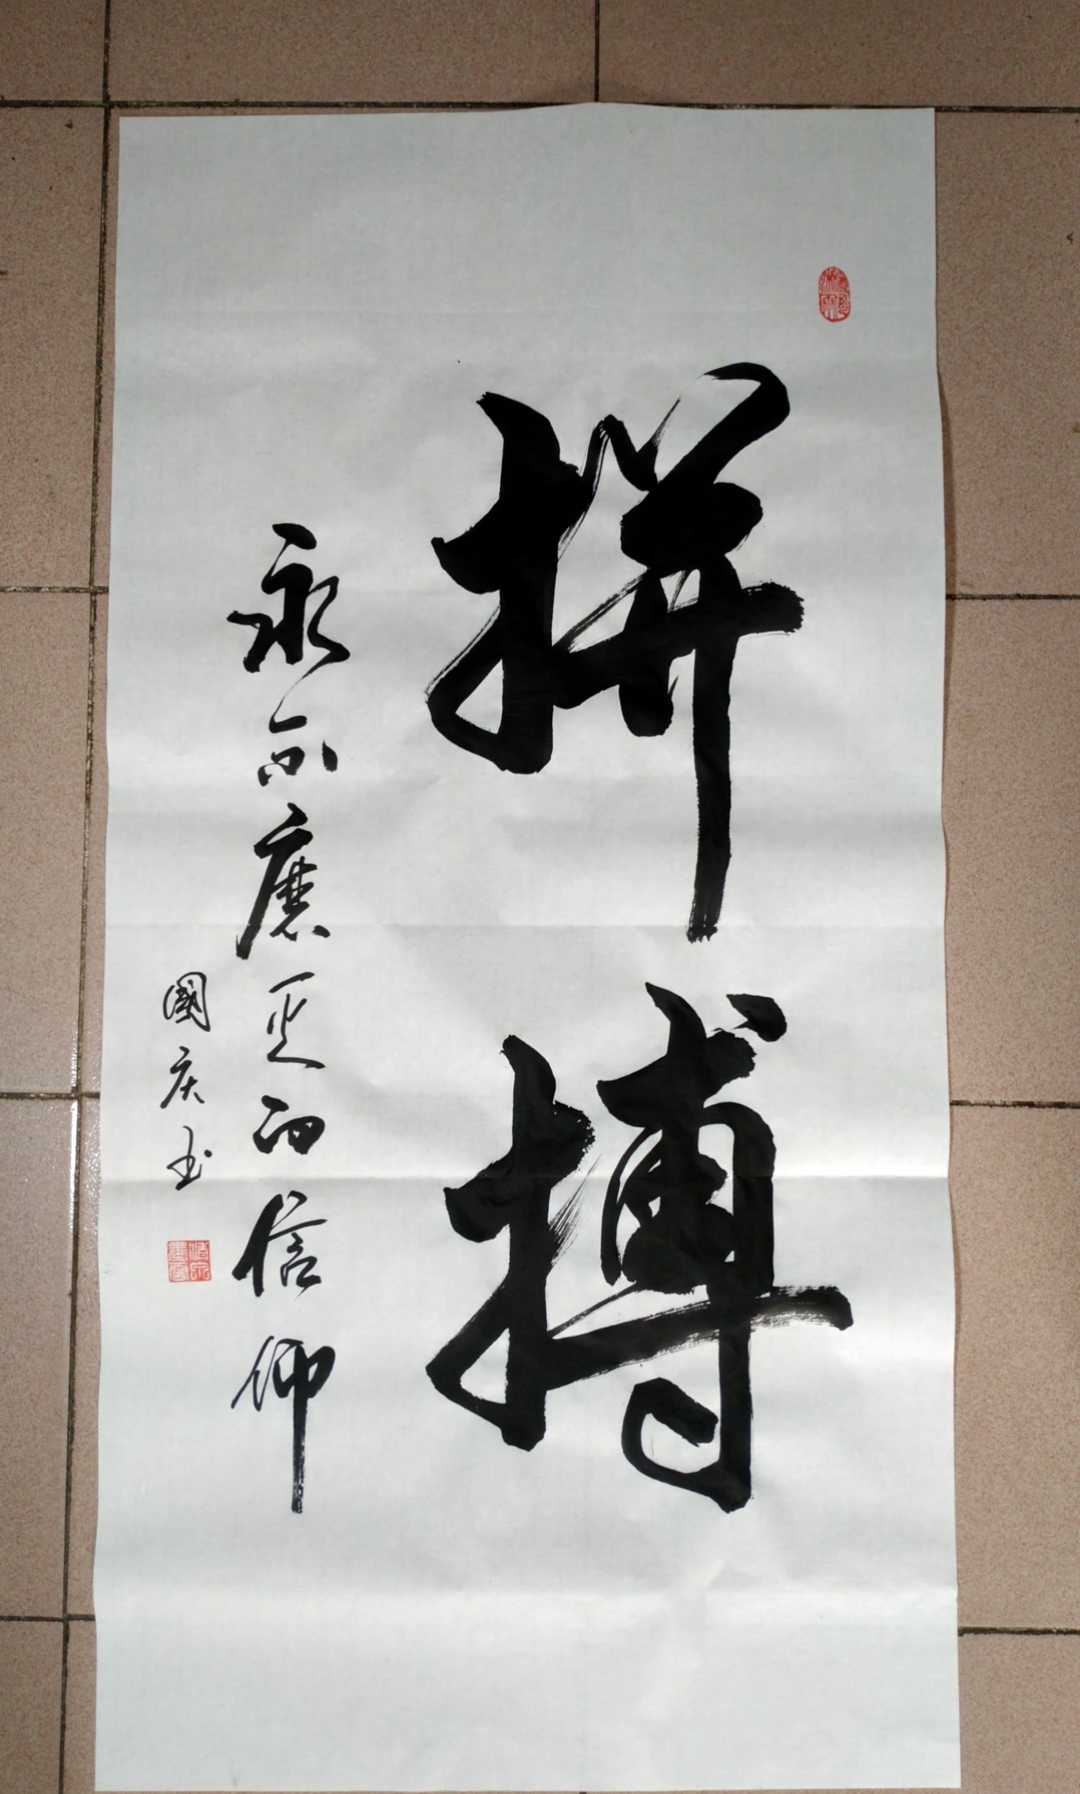 拼搏
永不磨灭的信仰
國庆书